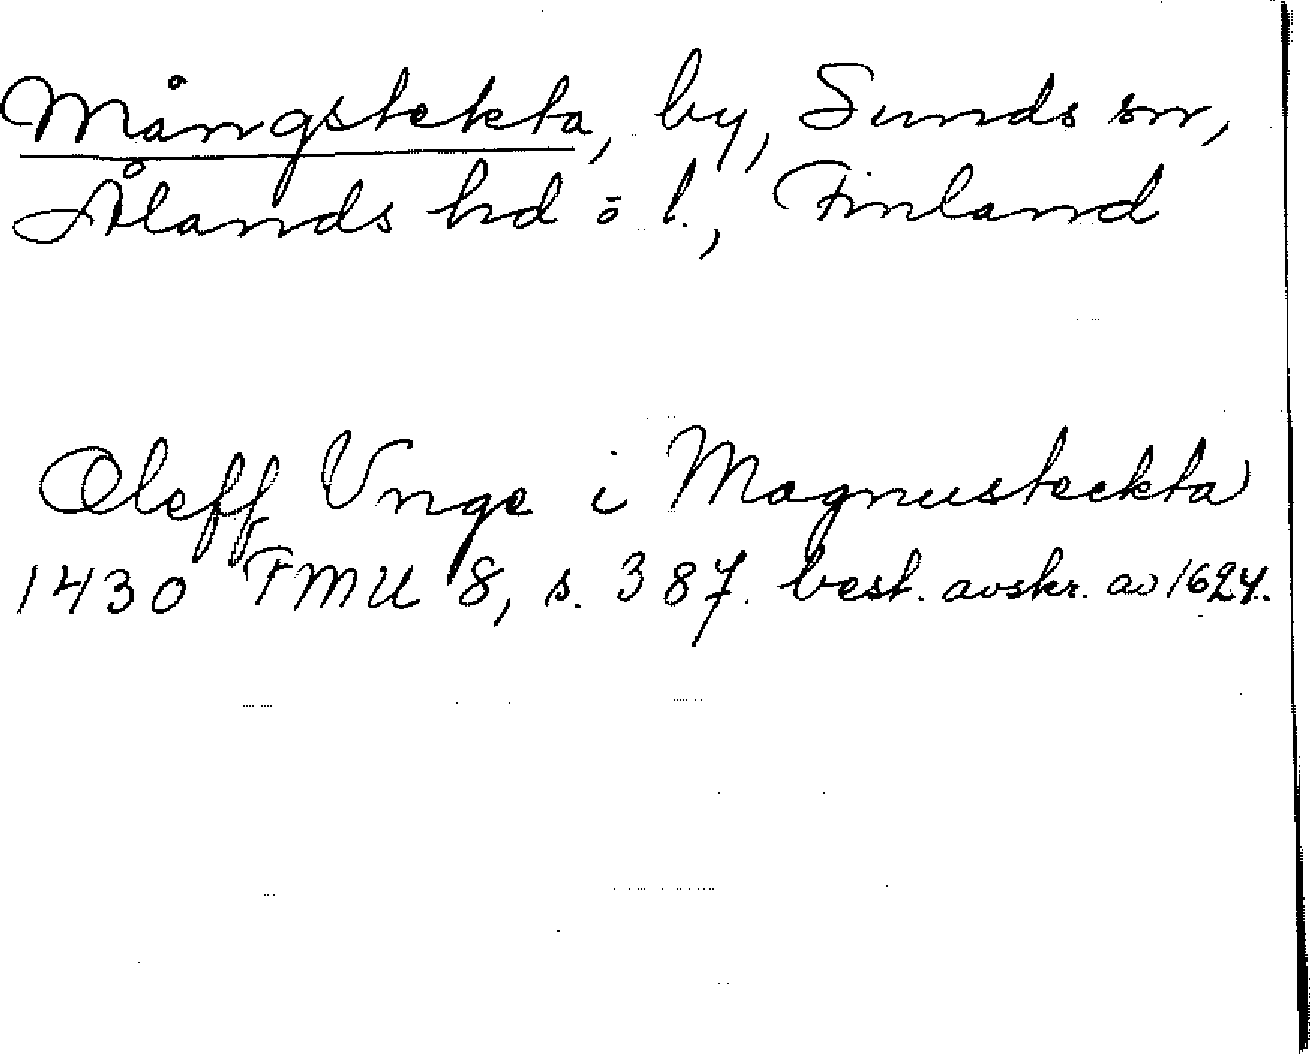 Mångstekta, by, Sunds sn,
Ålands hd o l., Finland
Oleff Vnge i Magnusteckta
1430 FMU 8, s. 387. best. avskr. av 1624.